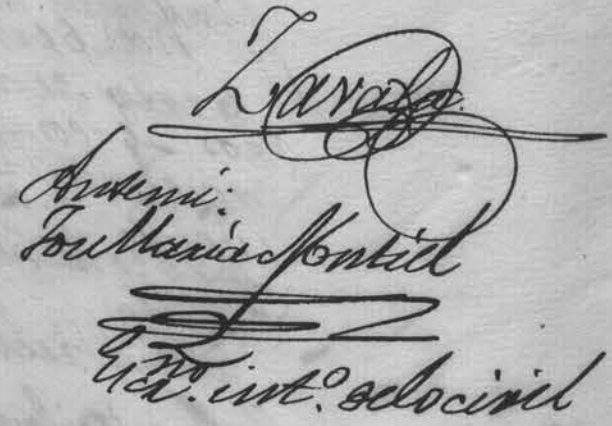 Zavala.
Ante mi:
José Maria Montiel
Es<sup>no</sup>. int.º de lo civil